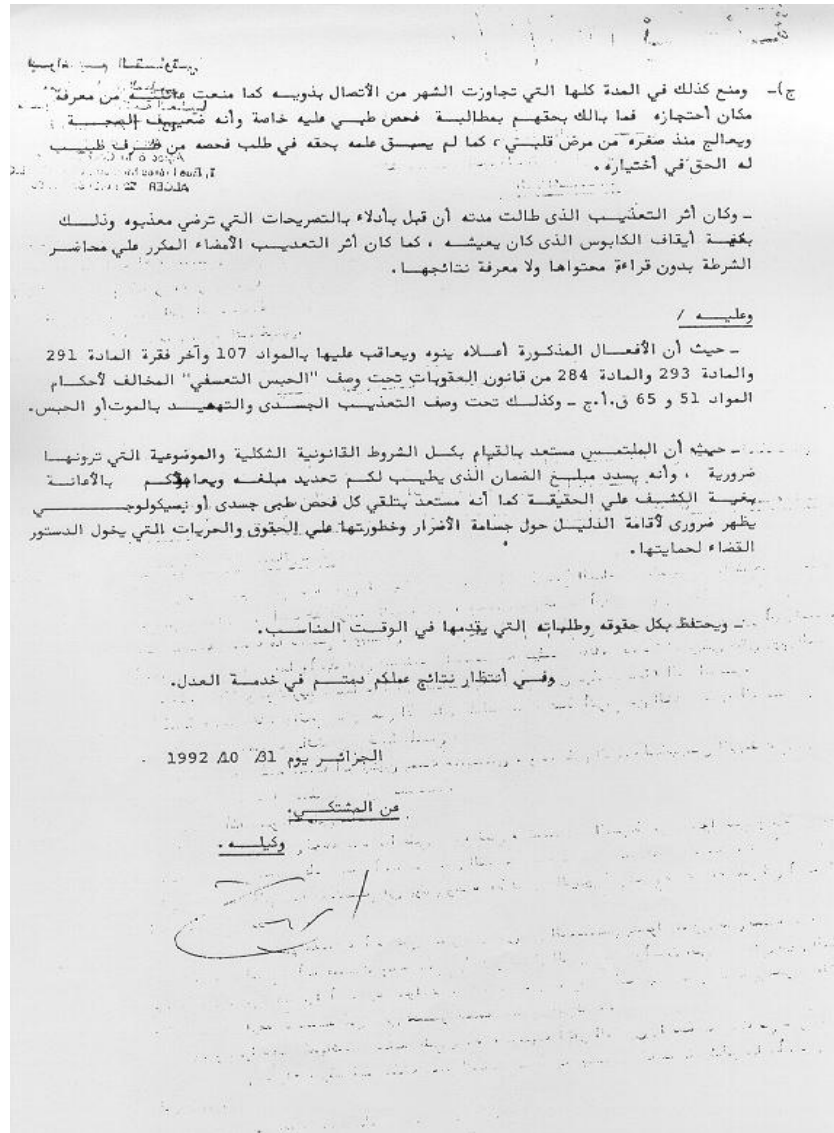 ج)- ومنع كذلك في المدة كلها التي تجاوزت الشهر من الأتصال بذويه كما منعت عائلته من معرفة
مكان أحتجازه فما بالك بحقهم بمطالبة فحص طبي عليه خاصة وأنه ضعيف الصحة
ويعالج منذ صغره من مرض قلبي ، كما لم يسبق علمه بحقه في طلب فحصه من طرف طبيب
له الحق في أختياره .
- وكان أثر التعذيب الذى طالت مدته أن قبل بأدلاء بالتصريحات التي ترضي معذبوه وذلك
بغية أيقاف الكابوس الذى كان يعيشه ، كما كان أثر التعديب الأمضاء المكرر علي محاضر
الشرطة بدون قراءة محتواها ولا معرفة نتائجها .
وعليه /
- حيث أن الأفعال المذكورة أعلاه ينوه ويعاقب عليها بالمواد 107 وآخر فقرة المادة 291
والمادة 293 والمادة 284 من قانون العقوبات تحت وصف "الحبس التعسفي" المخالف لأحكام
المواد 51 و 65 ق.أ.ج - وكذلك تحت وصف التعذيب الجسدى والتهديد بالموت أو الحبس.
- حيث أن الملتمس مستعد بالقيام بكل الشروط القانونية الشكلية والموضوعية التي ترونها
ضرورية ، وأنه يسدد مبلغ الضمان الذى يطيب لكم تحديد مبلغه بالأعانة
بغية الكشف علي الحقيقة كما أنه مستعد بتلقي كل فحص طبى جسدى أو بسيكولوجي
يظهر ضرورى لأقامة الدليل حول جسامة الأضرار وخطورتها علي الحقوق والحريات التي يخول الدستور
القضاء لحمايتها .
- ويحتفظ بكل حقوقه وطلباته التي يقدمها في الوقت المناسب .
وفي أنتظار نتائج عملكم دمتم في خدمة العدل .
الجزائر يوم 31/ 10/ 1992
عن المشتكي .
وكيله .